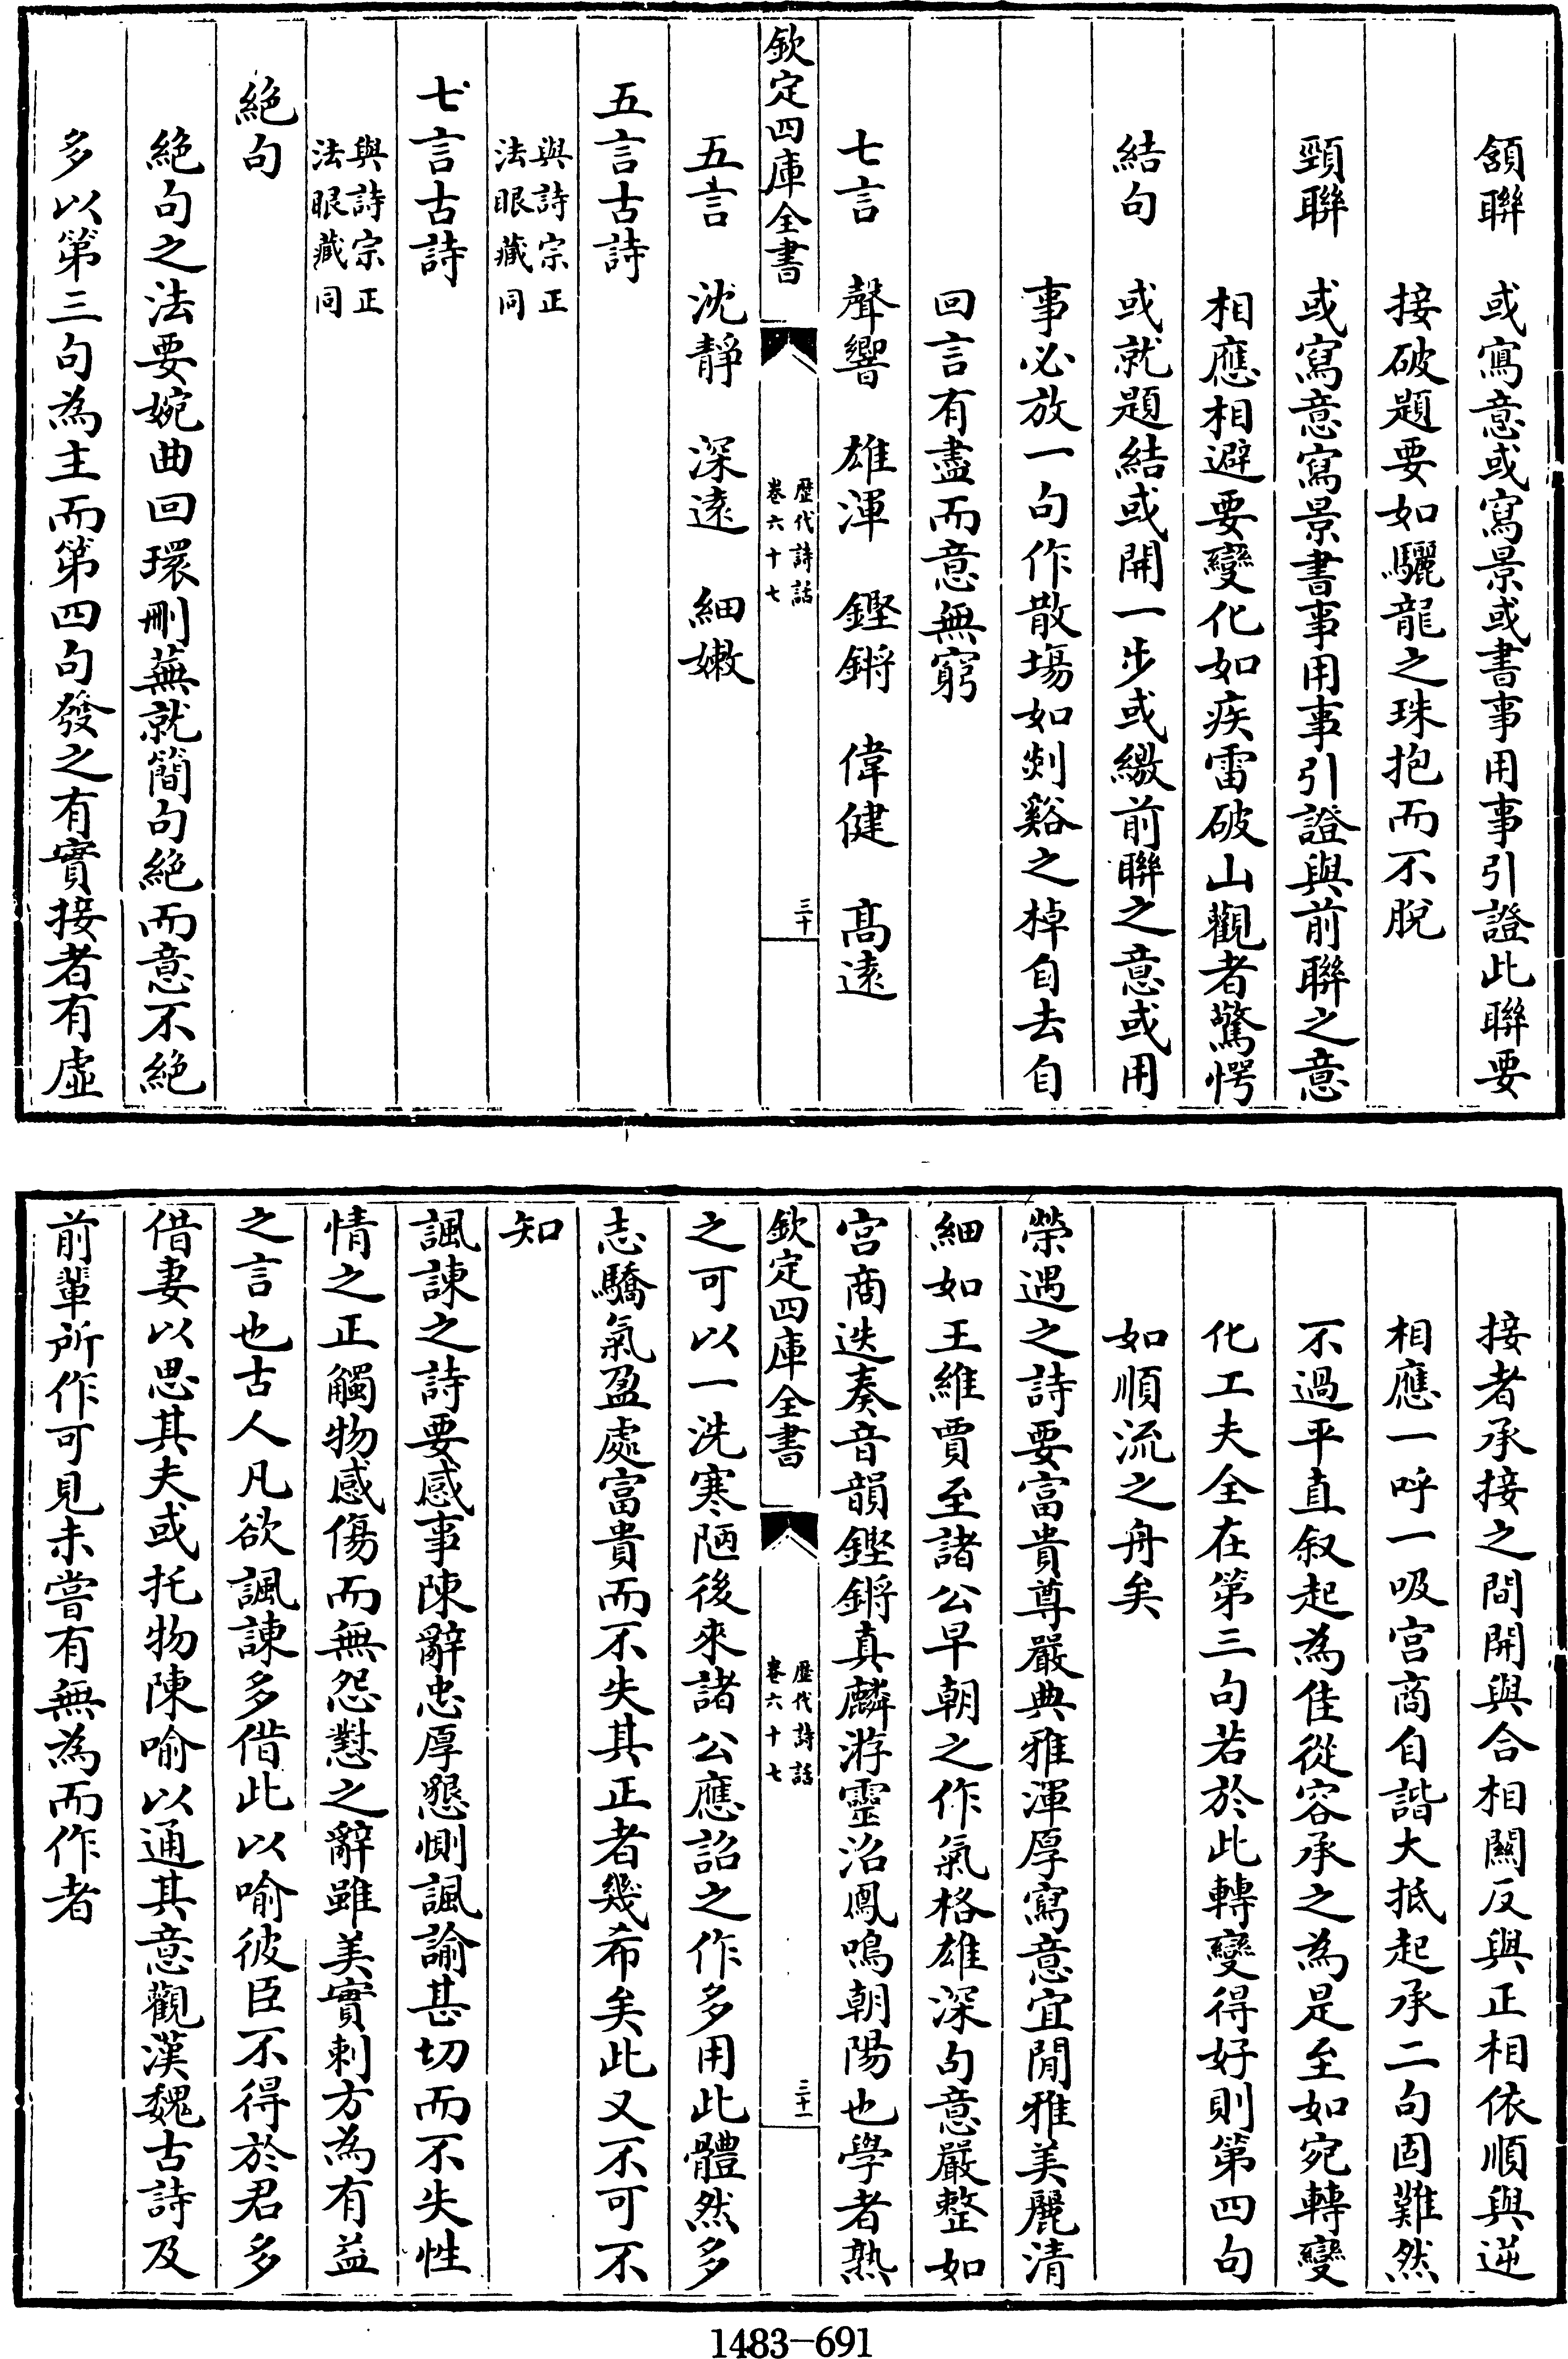 頷聯　或寫意或寫景或書事用事引證此聯要
接破題要如驪龍之珠抱而不脫
頸聯　或寫意寫景書事用事引證與前聯之意
相應相避要變化如疾雷破山觀者驚愕
結句　或就題結或開一步或繳前聯之意或用
事必放一句作散場如剡谿之棹自去自
回言有盡而意無窮
七言　聲響　雄渾　鏗鏘　偉健　高遠
欽定四庫全書
歷代詩話
卷六十七
三十
五言　沈靜　深遠　細嫩
五言古詩
與詩宗正
法眼藏同
七言古詩
與詩宗正
法眼藏同
絕句
絕句之法要婉曲回環刪蕪就簡句絕而意不絕
多以第三句為主而第四句發之有實接者有虛
接者承接之間開與合相關反與正相依順與逆
相應一呼一吸宮商自諧大抵起承二句固難然
不過平直叙起為佳從容承之為是至如宛轉變
化工夫全在第三句若於此轉變得好則第四句
如順流之舟矣
榮遇之詩要富貴尊嚴典雅渾厚寫意宜閒雅美麗清
細如王維賈至諸公早朝之作氣格雄深句意嚴整如
宮商迭奏音韻鏗鏘真麟游靈沼鳳鳴朝陽也學者熟
欽定四庫全書
歷代詩話
卷六十七
三十一
之可以一洗寒陋後來諸公應詔之作多用此體然多
志驕氣盈處富貴而不失其正者幾希矣此又不可不
知
諷諫之詩要感事陳辭忠厚懇惻諷諭甚切而不失性
情之正觸物感傷而無怨懟之辭雖美實刺方為有益
之言也古人凡欲諷諫多借此以喻彼臣不得於君多
借妻以思其夫或托物陳喻以通其意觀漢魏古詩及
前輩所作可見未嘗有無為而作者
1483—691